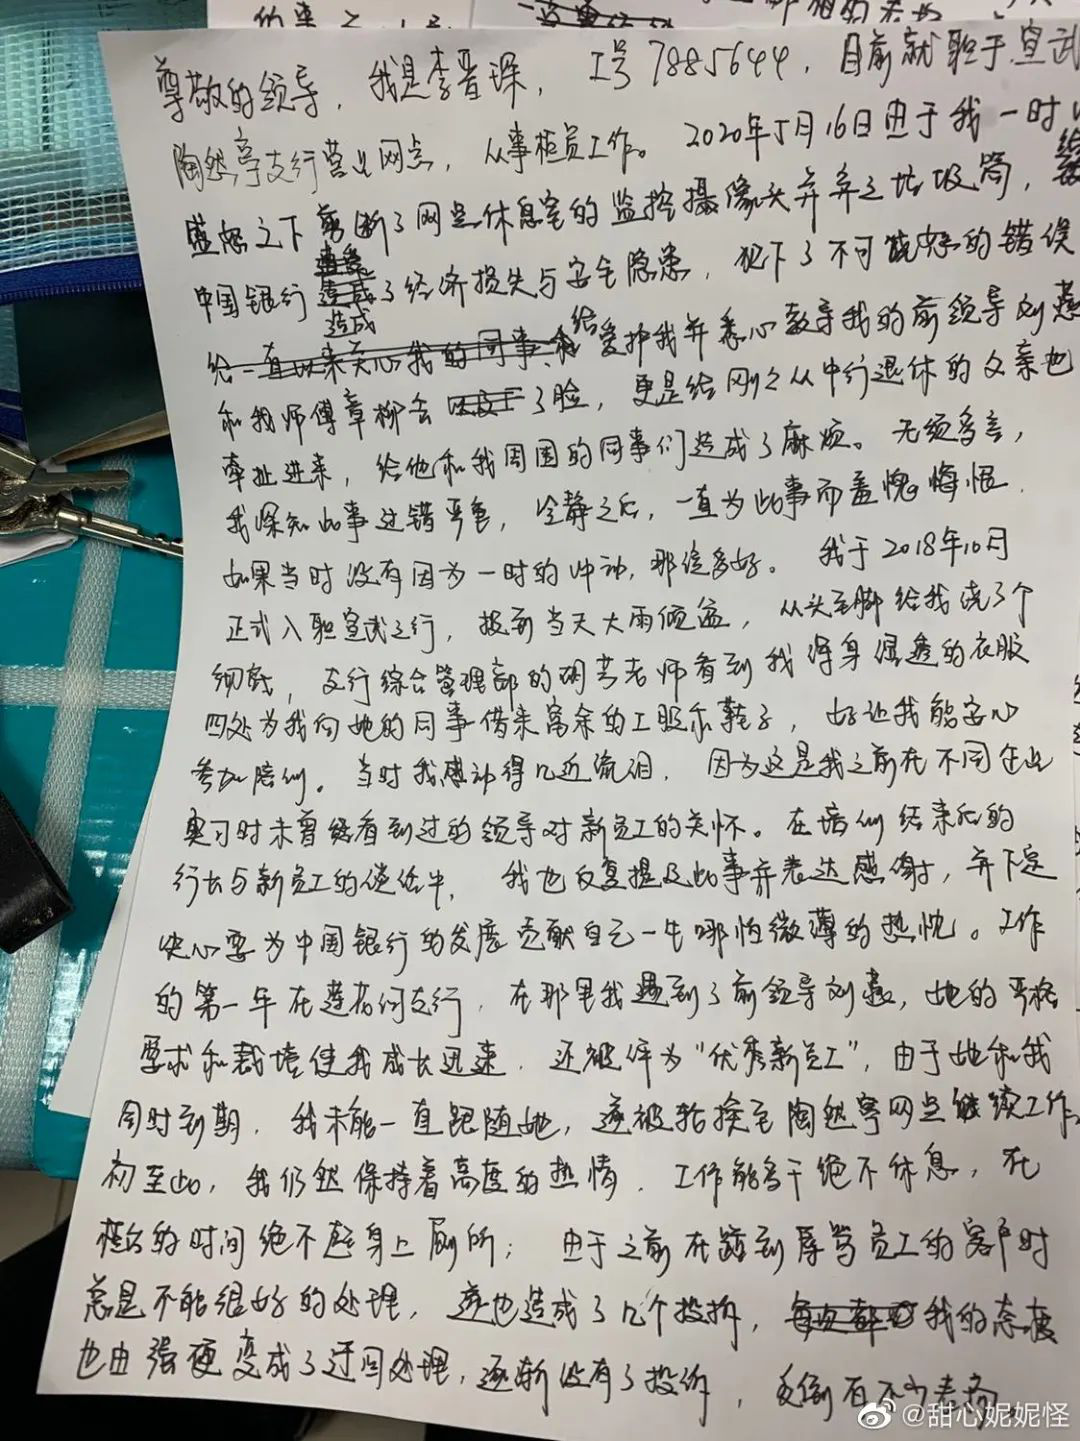 尊敬的领导，我是李晋琛，工号7885644，目前就职于宣武
陶然亭支行营业网点，从事柜员工作。2020年5月16日由于我一时
盛怒之下剪断了网点休息室的监控摄像头并弃之垃圾筒，给
中国银行造成了经济损失与安全隐患，犯下了不可饶恕的错误
给爱护我并悉心教导我的前领导刘燕
和我师傅章柳云了脸，更是给刚刚从中行退休的父亲也
牵扯进来，给他和我周围的同事们造成了麻烦。无须多言，
我深知此事过错严重，冷静之后，一直为此事而羞愧悔恨.
如果当时没有因为一时的冲动，那该多好。我于2018年10月
正式入职宣武支行，报到当天大雨倾盆，从头至脚给我浇了个
彻底，支行综合管理部的胡芳老师看到我浑身湿透的衣服
四处为我向她的同事借来富余的工服和鞋子，好让我能安心
参加培训。当时我感动得几近流泪，因为这是我之前在不同企业
实习时未曾经看到过的领导对新员工的关怀。在培训结束后的
行长与新员工的谈话中，我也反复提及此事并表达感谢，并下定
决心要为中国银行的发展贡献自己一生哪怕微薄的热忱。工作
的第一年在莲花河支行，在那里我遇到了前领导刘燕，她的严格
要求和栽培使我成长迅速，还被评为“优秀新员工”，由于她和我
同时到期，我未能一直跟随她，遂被轮换至陶然亭网点继续工作。
初至此，我仍然保持着高度的热情，工作能多干绝不休息，在
柜台的时间绝不起身上厕所；由于之前在碰到辱骂员工的客户时
总是不能很好的处理，遂也造成了几个投拆，我的态度
也由强硬变成了迂回处理，逐渐没有了投诉，反倒有不少表扬。
@甜心妮妮怪